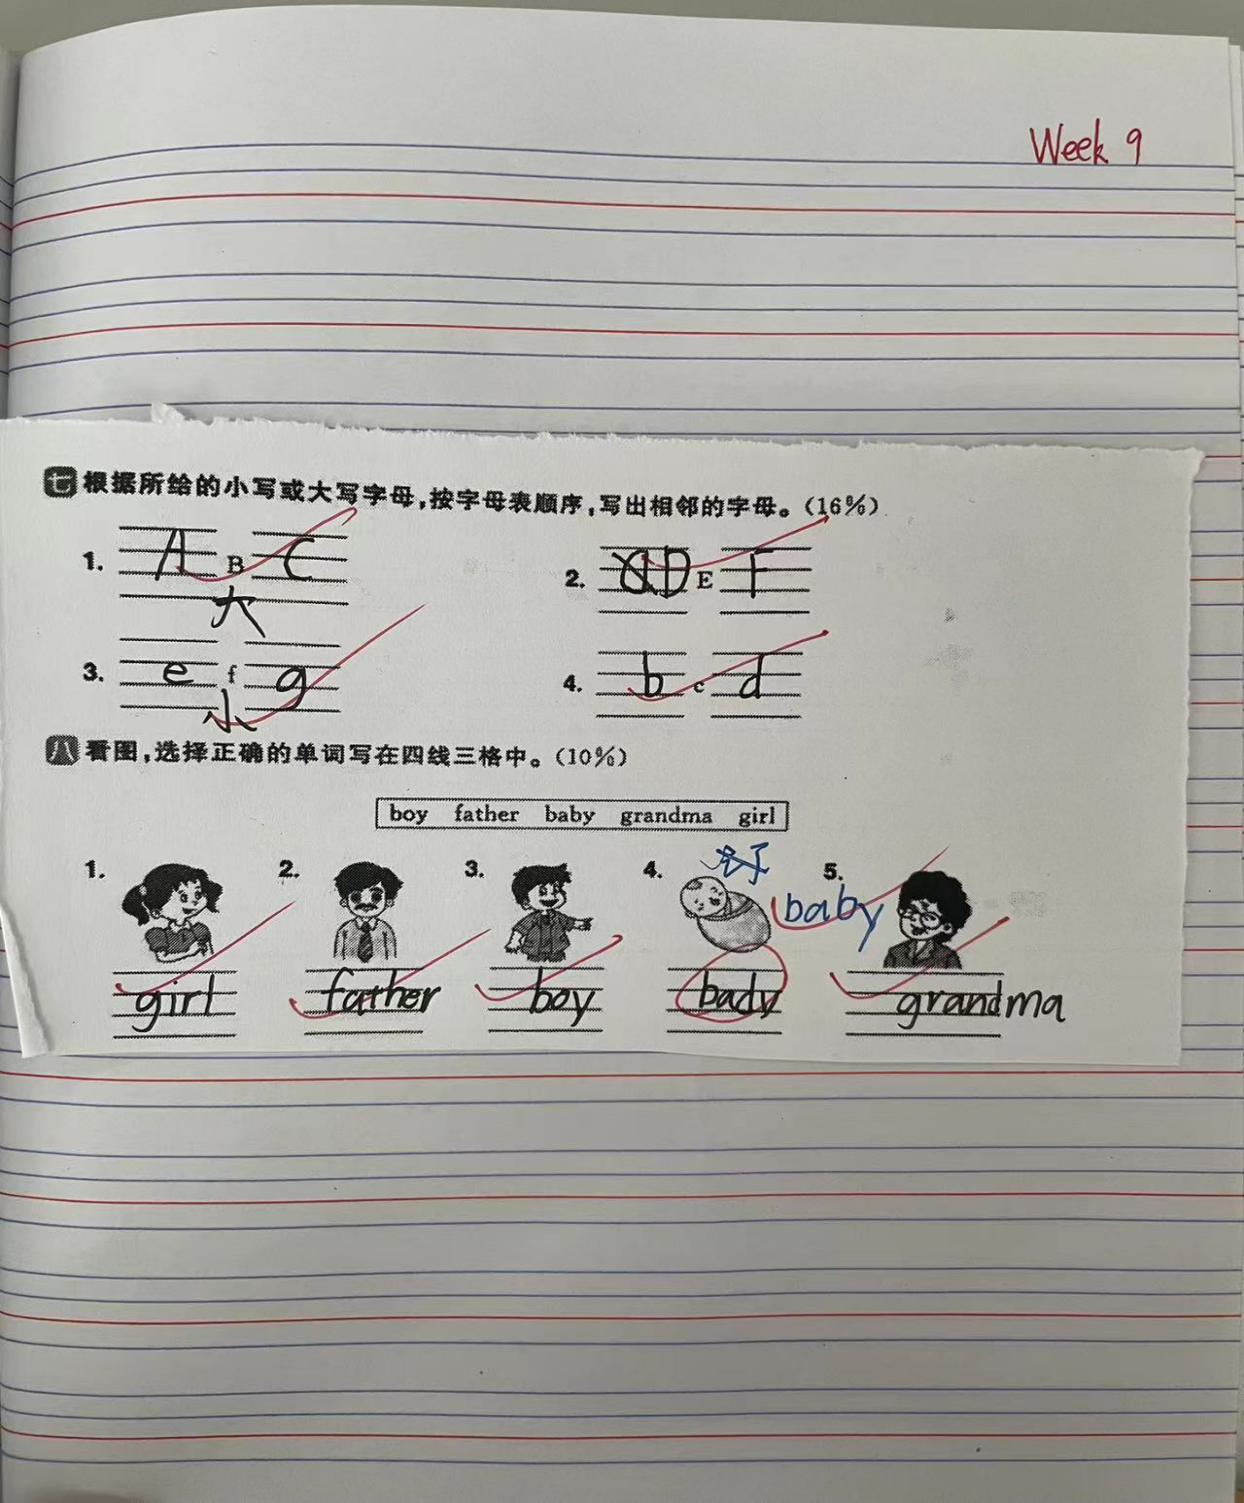 Week 9
七 根据所给的小写或大写字母,按字母表顺序,写出相邻的字母。(16%)
1. A B C 2. D E F
大
3. e f g 4. b c d
小
八 看图,选择正确的单词写在四线三格中。(10%)
boy father baby grandma girl
1. 2. 3. 4. 5.
baby
girl father boy bady grandma